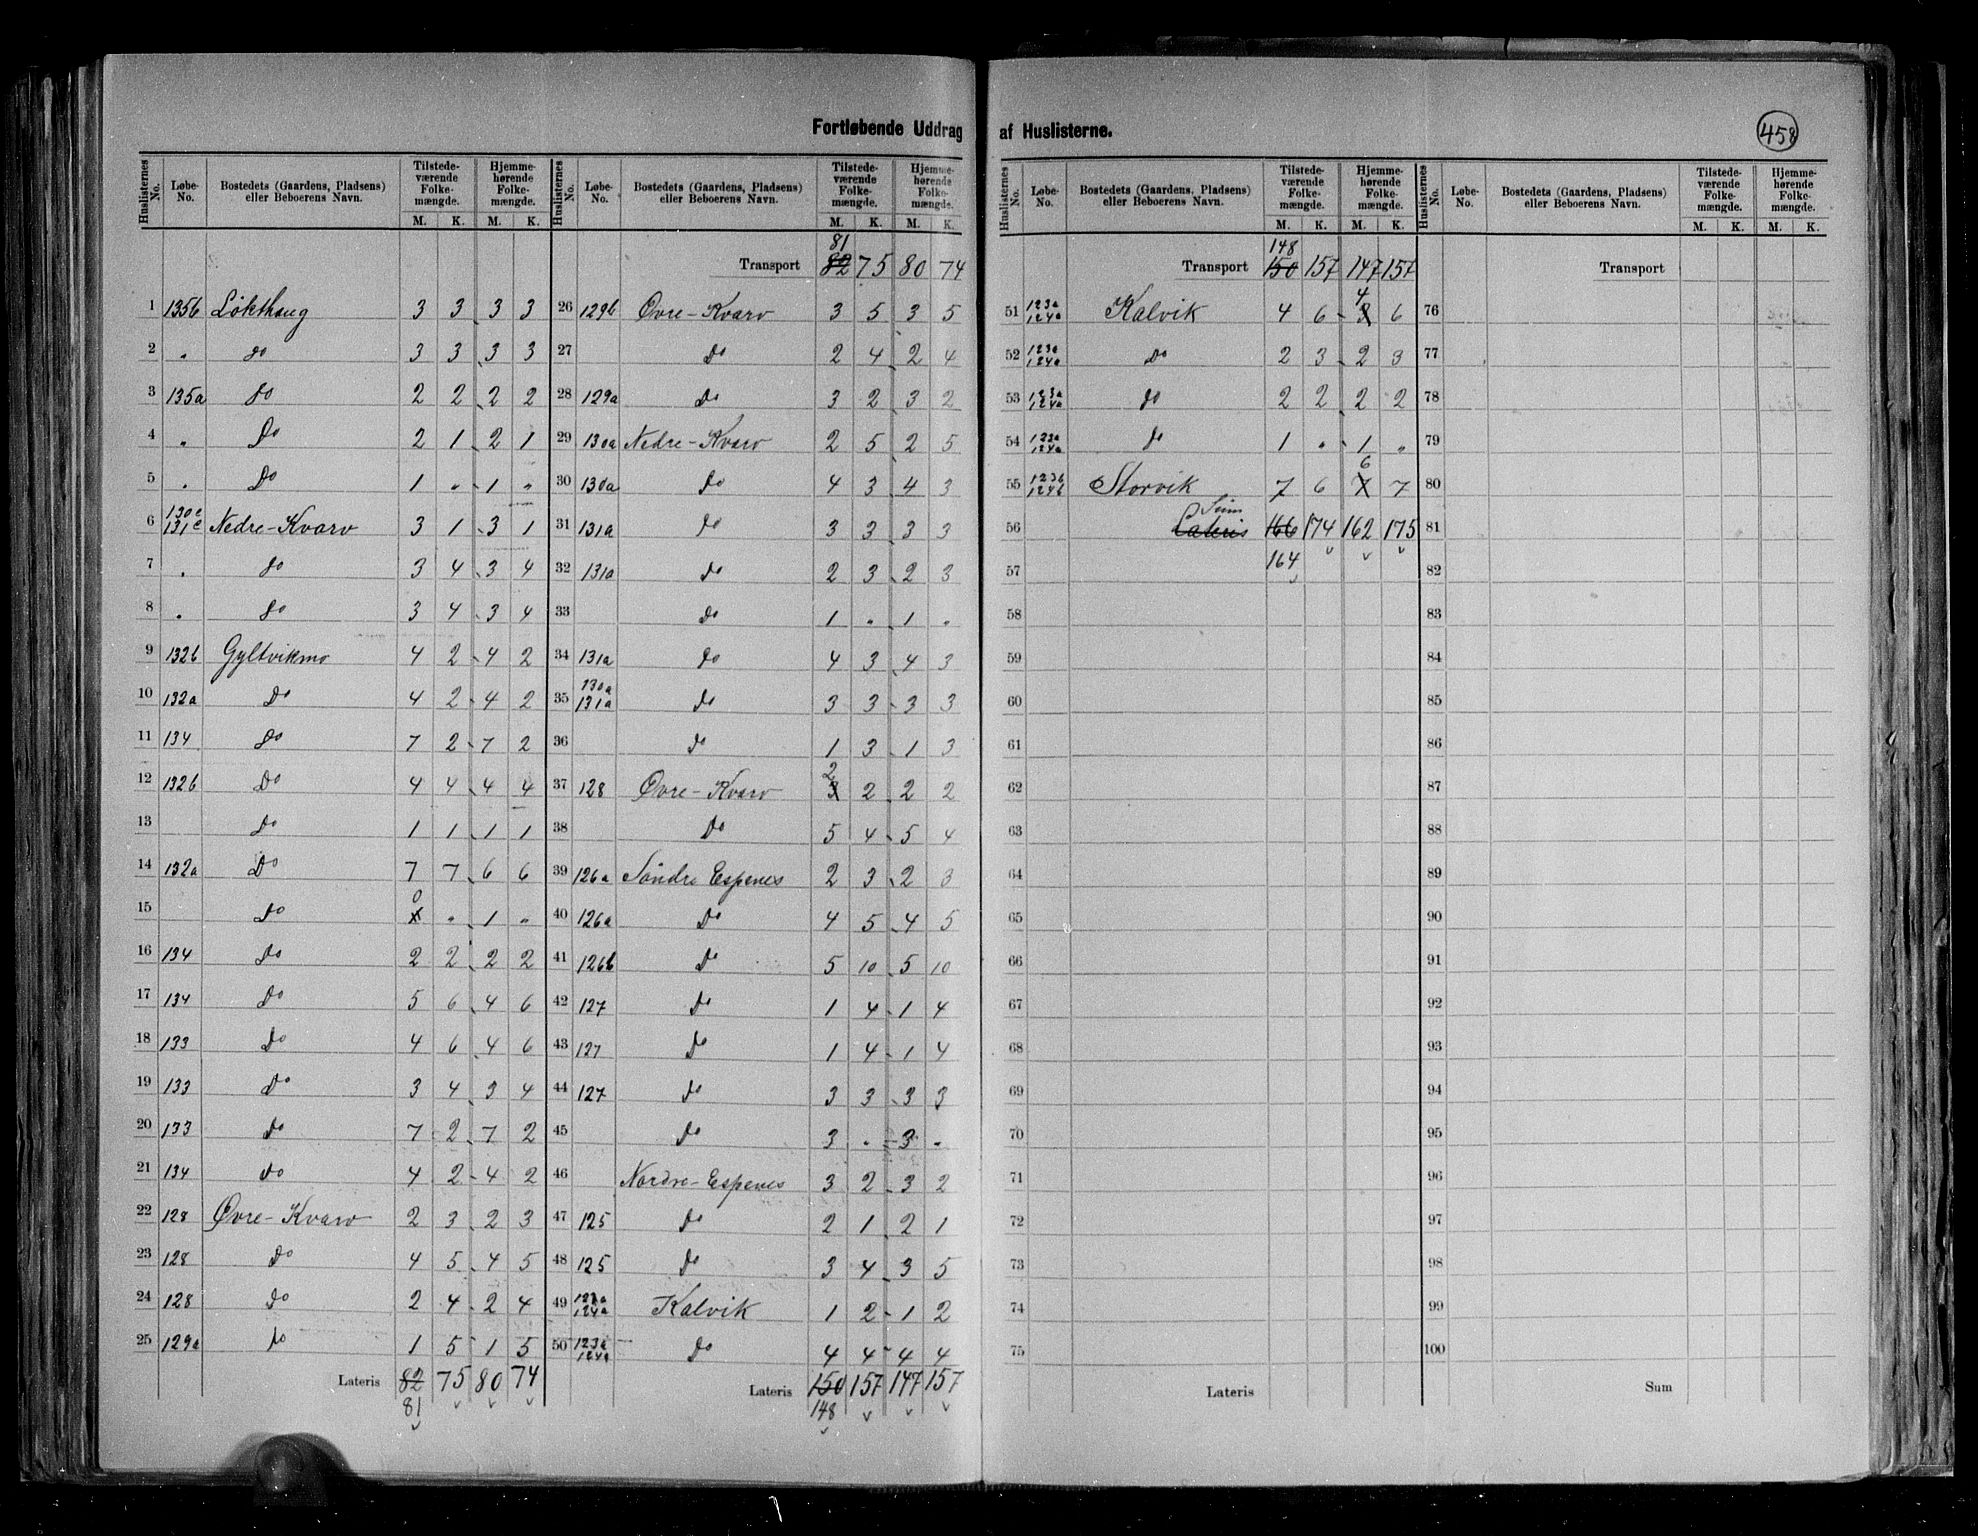 Fortløbende Uddrag af Huslisterne.
458
Huslisternes No. Løbe-No. Bostedets (Gaardens, Pladsens) eller Beboerens Navn. Tilstedeværende Folkemængde. M. K. Hjemmehørende Folkemængde. M. K.
1 135b Lökthaug 3 3 3 3
2 " do 3 3 3 3
3 135a do 2 2 2 2
4 " Do 2 1 2 1
5 " Do 1 " 1 "
6 130c 131c Nedre-Kvarv 3 1 3 1
7 " do 3 4 3 4
8 " do 3 4 3 4
9 132b Gyltvikmo 4 2 4 2
10 132a Do 4 2 4 2
11 134 do 7 2 7 2
12 132b Do 4 4 4 4
13 Do 1 1 1 1
14 132a Do 7 7 6 6
15 Do 0 " 1 "
16 134 Do 2 2 2 2
17 134 Do 5 6 4 6
18 133 Do 4 6 4 6
19 133 Do 3 4 3 4
20 133 do 7 2 7 2
21 134 do 4 2 4 2
22 128 Øvre-Kvarv 2 3 2 3
23 128 Do 4 5 4 5
24 128 Do 2 4 2 4
25 129a Do 1 5 1 5
Lateris 82 75 80 74
81
Huslisternes No. Løbe-No. Bostedets (Gaardens, Pladsens) eller Beboerens Navn. Tilstedeværende Folkemængde. M. K. Hjemmehørende Folkemængde. M. K.
81
Transport 82 75 80 74
26 129b Øvre-Kvarv 3 5 3 5
27 Do 2 4 2 4
28 129a Do 3 2 3 2
29 130a Nedre-Kvarv 2 5 2 5
30 130a Do 4 3 4 3
31 131a Do 3 3 3 3
32 131a Do 2 3 2 3
33 Do 1 " 1 "
34 131a Do 4 3 4 3
35 130a 131a Do 3 3 3 3
36 Do 1 3 1 3
2
37 128 Øvre-Kvarv 3 2 2 2
38 Do 5 4 5 4
39 126a Söndre Espenes 2 3 2 3
40 126a Do 4 5 4 5
41 126b Do 5 10 5 10
42 127 Do 1 4 1 4
43 127 Do 1 4 1 4
44 127 Do 3 3 3 3
45 Do 3 " 3 "
46 Nordre-Espenes 3 2 3 2
47 125 Do 2 1 2 1
48 125 Do 3 4 3 5
49 123a 124a Kalvik 1 2 1 2
50 123a 124a Do 4 4 4 4
Lateris 150 157 147 157
148
Huslisternes No. Løbe-No. Bostedets (Gaardens, Pladsens) eller Beboerens Navn. Tilstedeværende Folkemængde. M. K. Hjemmehørende Folkemængde. M. K.
148
Transport 150 157 147 157
4
51 123a 124a Kalvik 4 6 3 6
52 123a 124a Do 2 3 2 3
53 123a 124a Do 2 2 2 2
54 123a 124a Do 1 " 1 "
6
55 123b 124b Storvik 7 6 7 7
Sum
56 Lateris 166 174 162 175
57 164
58
59
60
61
62
63
64
65
66
67
68
69
70
71
72
73
74
75
Lateris
Huslisternes No. Løbe-No. Bostedets (Gaardens, Pladsens) eller Beboerens Navn. Tilstedeværende Folkemængde. M. K. Hjemmehørende Folkemængde. M. K.
Transport
76
77
78
79
80
81
82
83
84
85
86
87
88
89
90
91
92
93
94
95
96
97
98
99
100
Sum